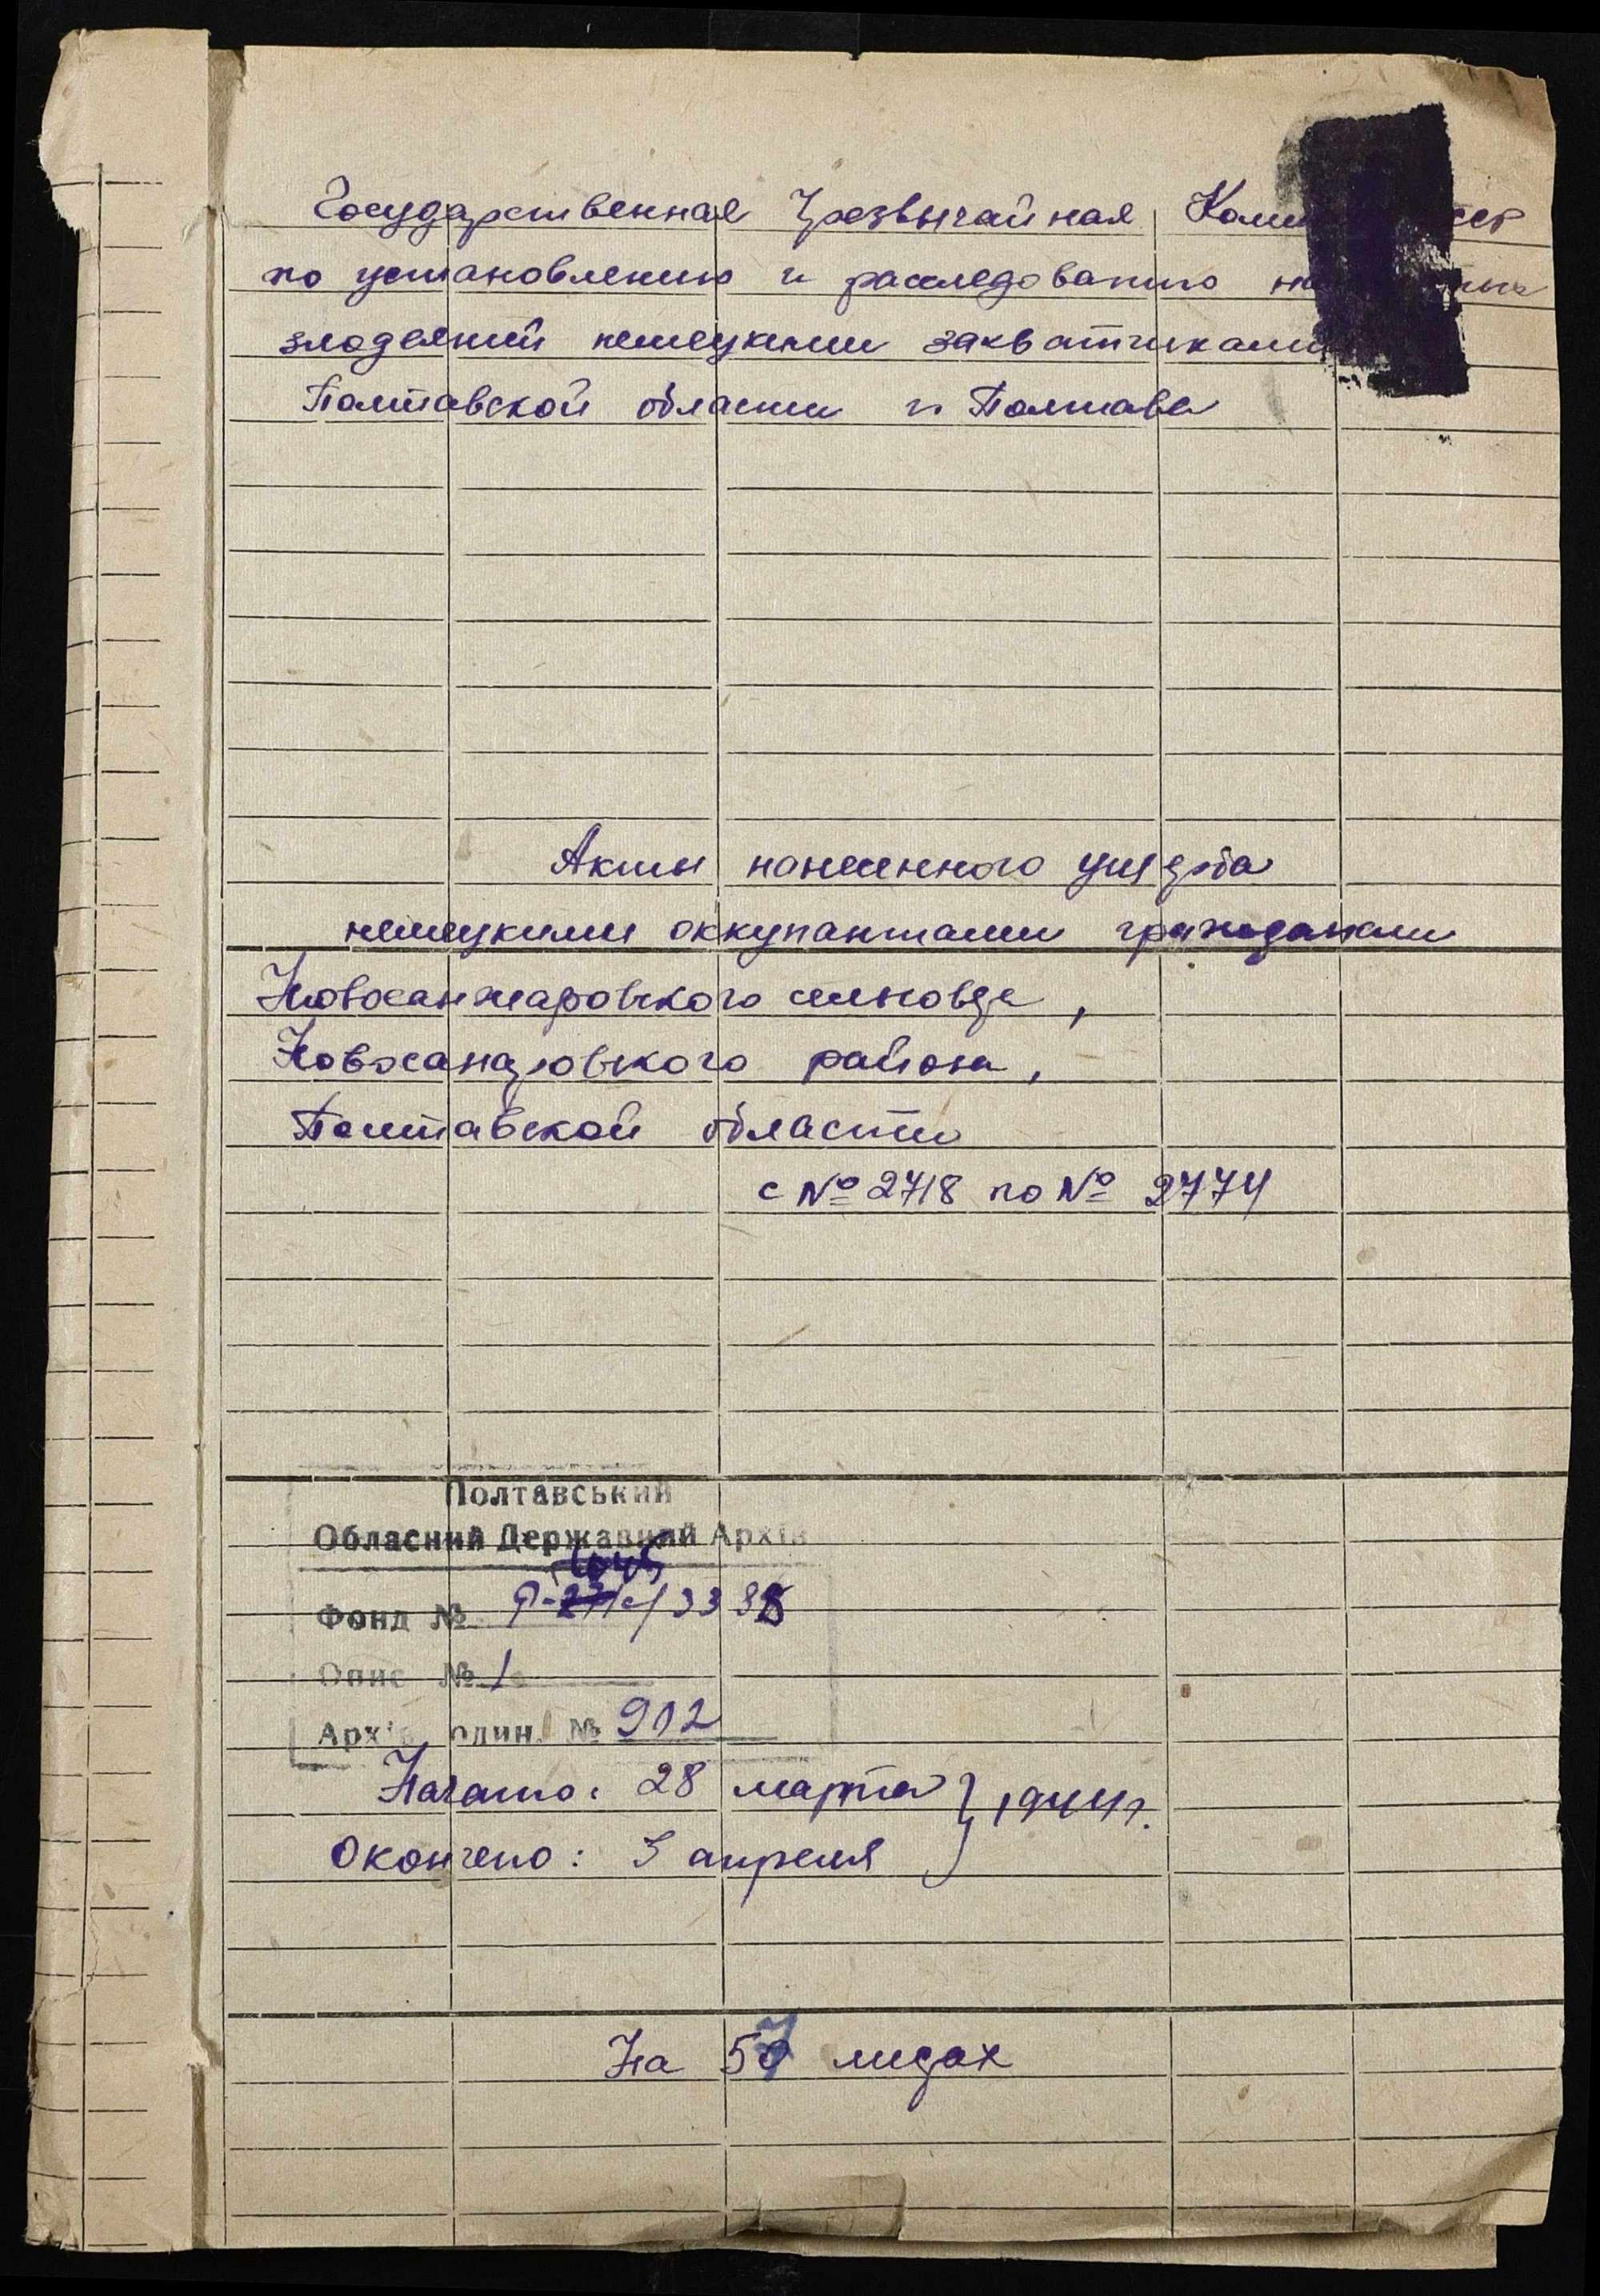 Государственная Чрезвычайная
по установлению и расследованию
злодеяний немецкими захватчиками
Полтавской области г. Полтава
Акты нанесенного ущерба
немецкими оккупантами гражданам
Новосанжаровского сельсовде,
Новосанжовского района,
Полтавской области
с № 2718 по № 2774
Полтавський
Обласний Державний Архів
Фонд № Р- 3388
Опис № 1
Архів один. № 902
Начато: 28 марта } 1944г.
Окончено: 3 апреля
На 57 лисдах